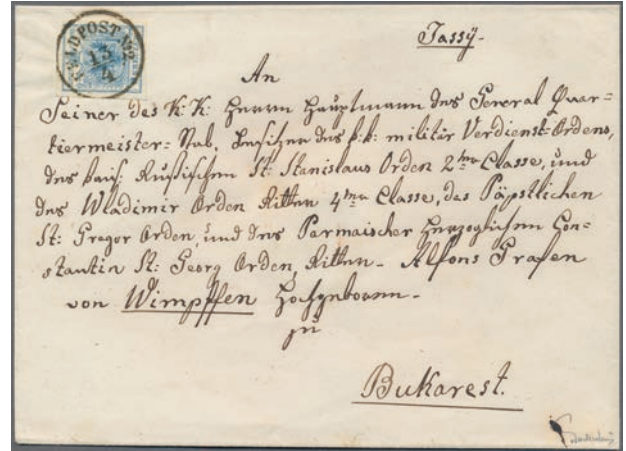 FELDPOST No 2
13
4
Jassÿ.
An
Seiner des K: K: Herrn Hauptmann des General Quar=
tiermeister= Stab, Besitzer des k: k: militär Verdienst=Ordens,
des kais: Rußischen St: Stanislaus Orden 2ter Classe, und
des Wladimir Orden Ritter 4ter Classe, des Päpstlichen
St: Gregor Orden, und des Parmaischer Herzoglichen Con=
stantin St: Georg Orden, Ritter - Alfons Grafen
von Wimpffen Hochgeboren -
zu
Bukarest.